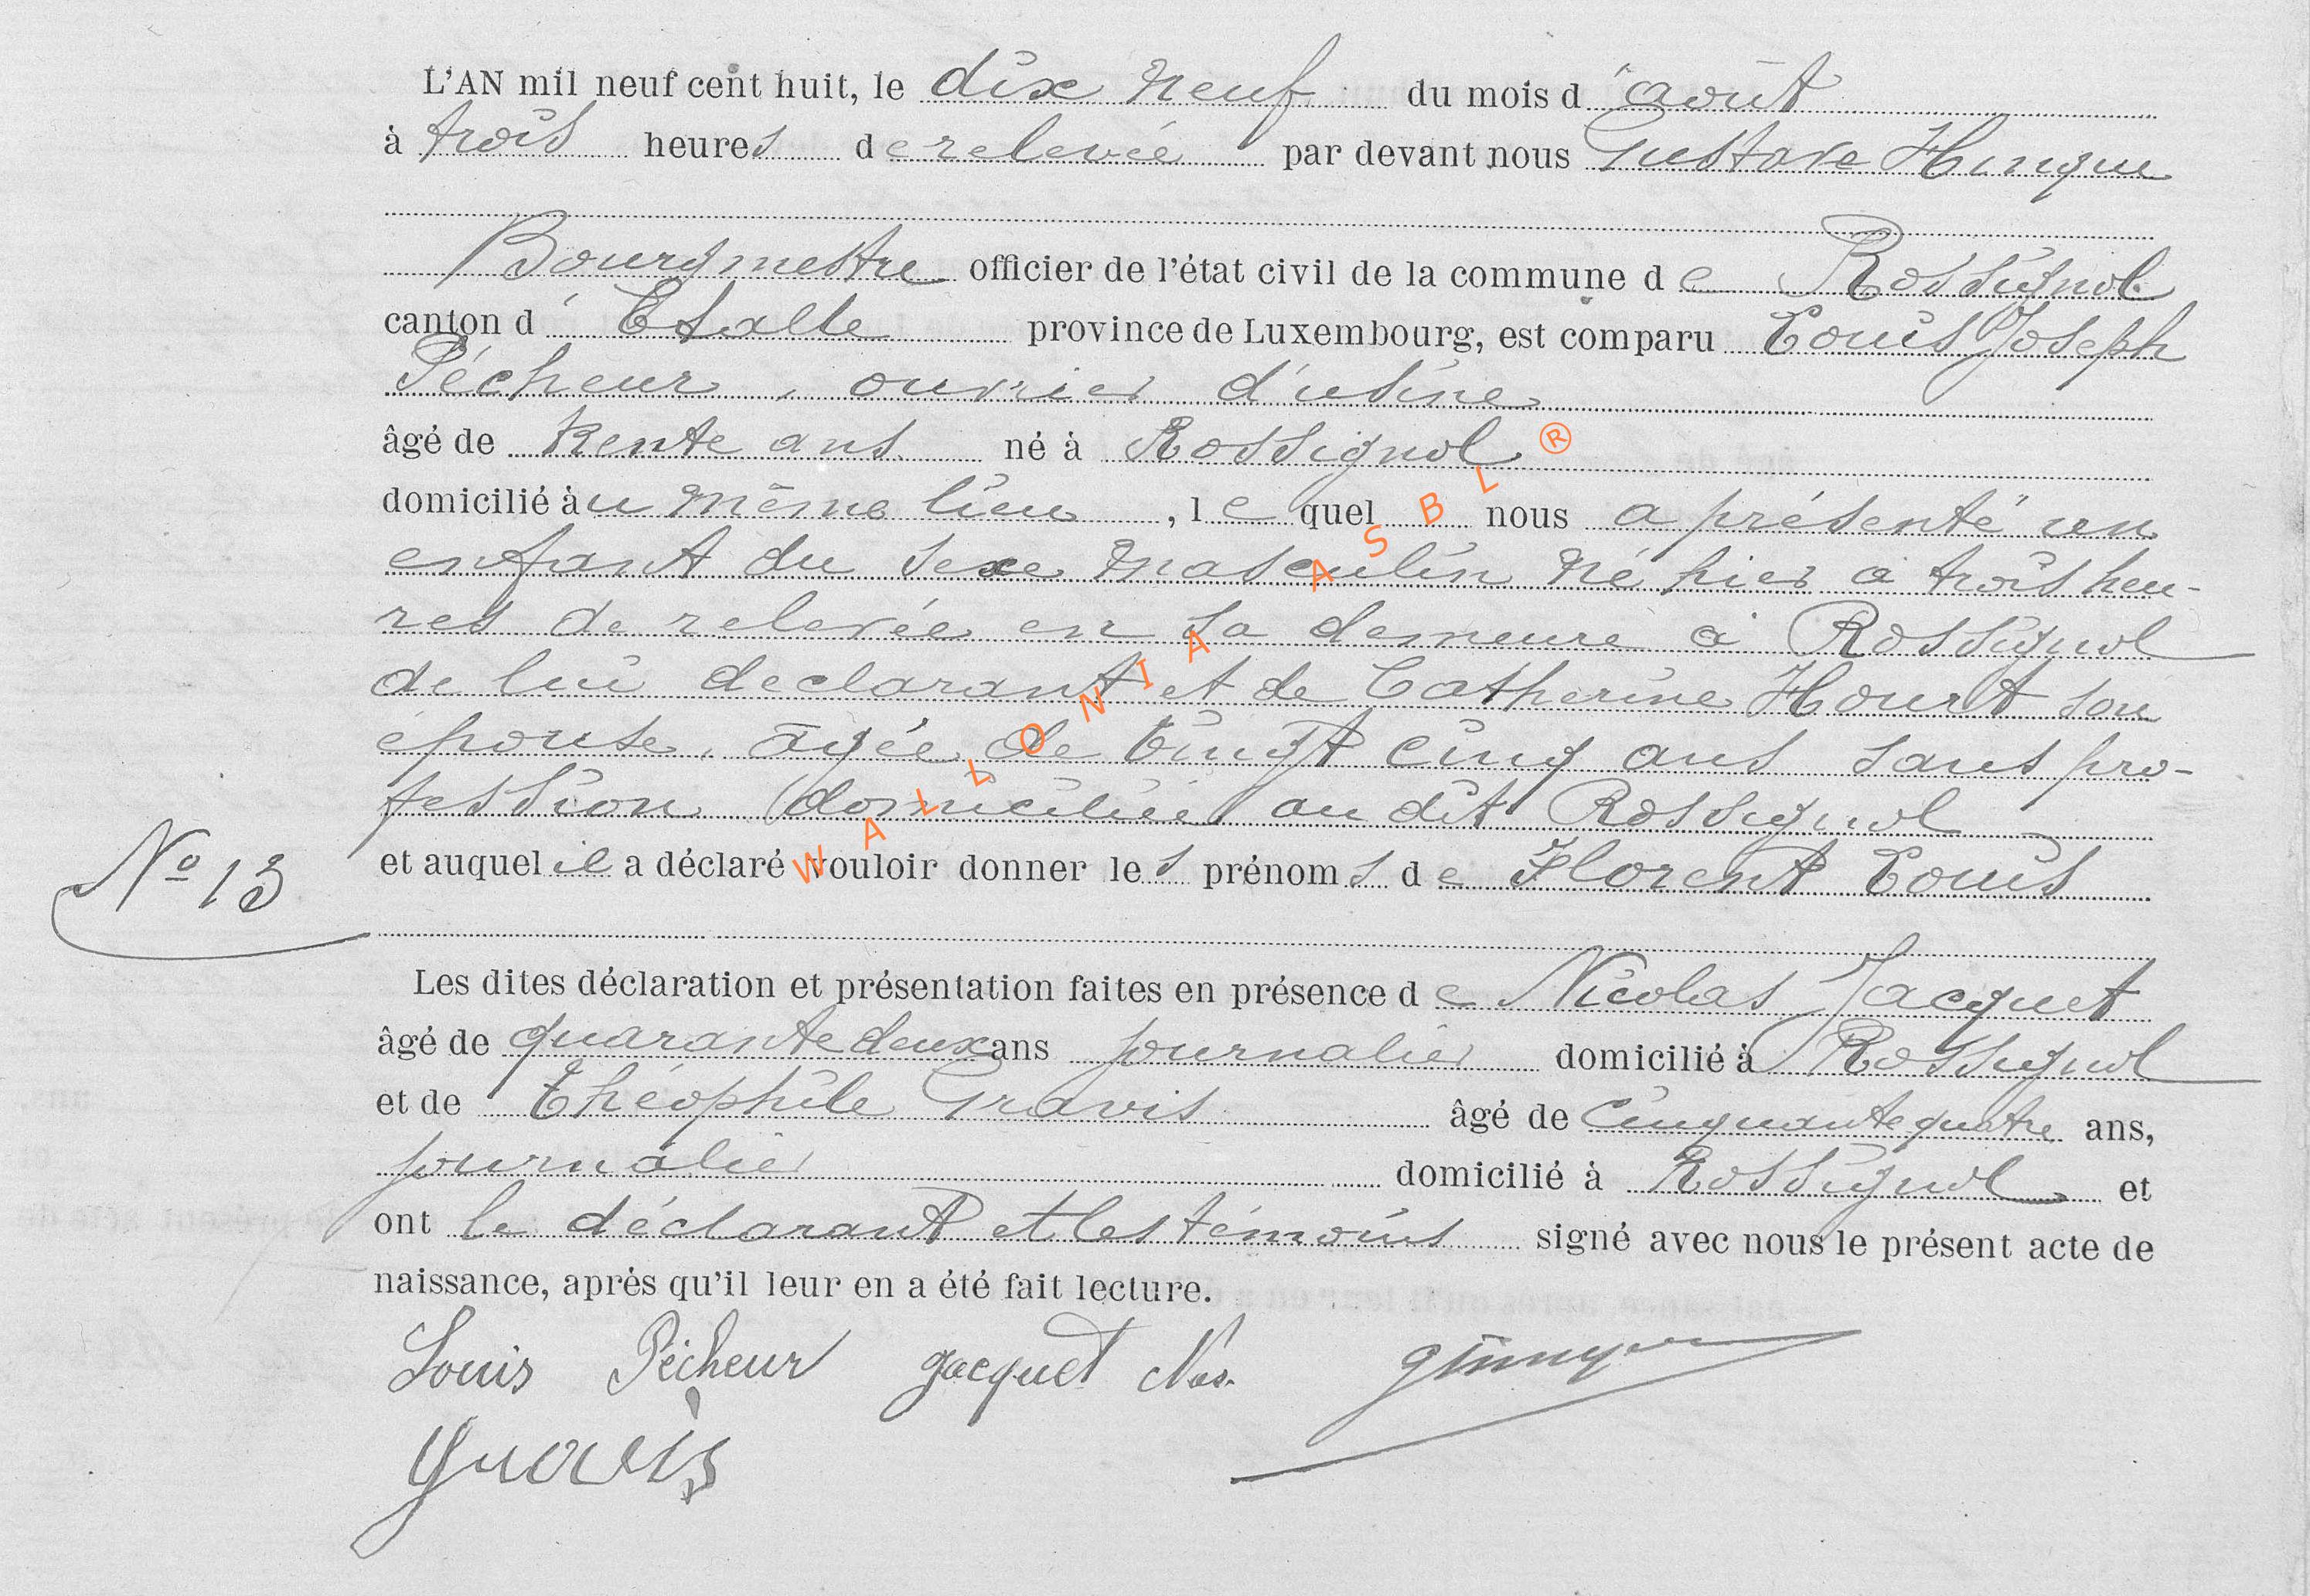 L'AN mil neuf cent huit, le dix neuf du mois d'août
à trois heures de relevée par devant nous Gustave Hinque
Bourgmestre officier de l'état civil de la commune de Rossignol
canton d'Etalle province de Luxembourg, est comparu Louis Joseph
Pécheur, ouvrier d'usine
âgé de trente ans né à Rossignol
domicilié àu même lieu, lequel nous a présenté un
enfant du sexe masculin né hier à trois heu-
res de relevée en sa demeure à Rossignol
de lui declarant et de Catherine Hourt son
épouse, âgée de vingt cinq ans sans pro-
fession domiciliée au dit Rossignol
et auquel il a déclaré vouloir donner les prénoms de Florent Louis
N° 13
Les dites déclaration et présentation faites en présence de Nicolas Jacquet
âgé de quarante deux ans journalier domicilié à Rossignol
et de Théophile Gravis âgé de cinquante quatre ans,
journalier domicilié à Rossignol et
ont le déclarant et les témoins signé avec nous le présent acte de
naissance, après qu'il leur en a été fait lecture.
Louis Pécheur Jacquet Nas. GHinque
Gravis
WALLONIA ASBL ®